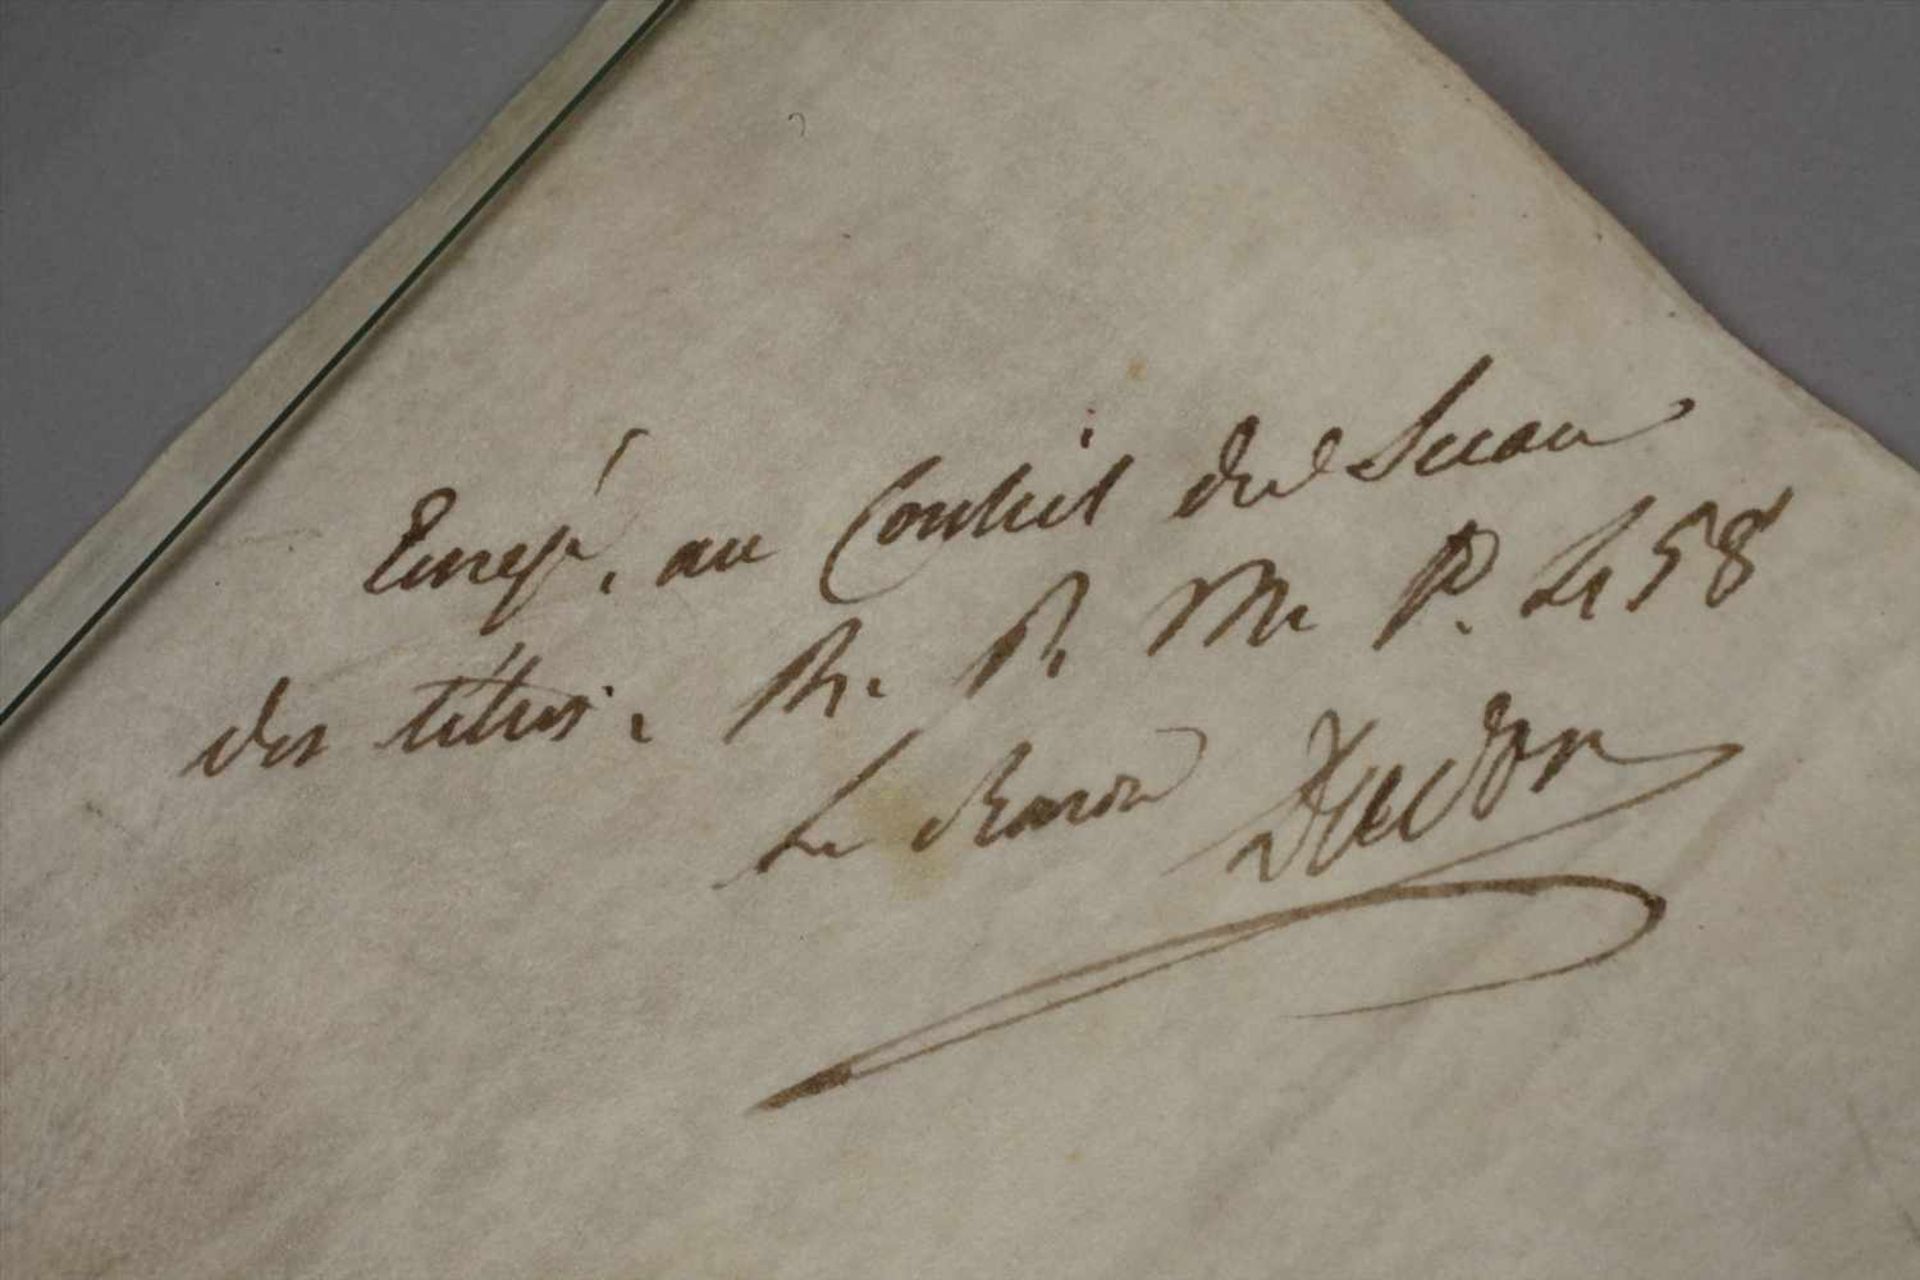 Enregé. au Conseil du Sceau
des titres. R. P. M. P. 58
Le Baron Dudon